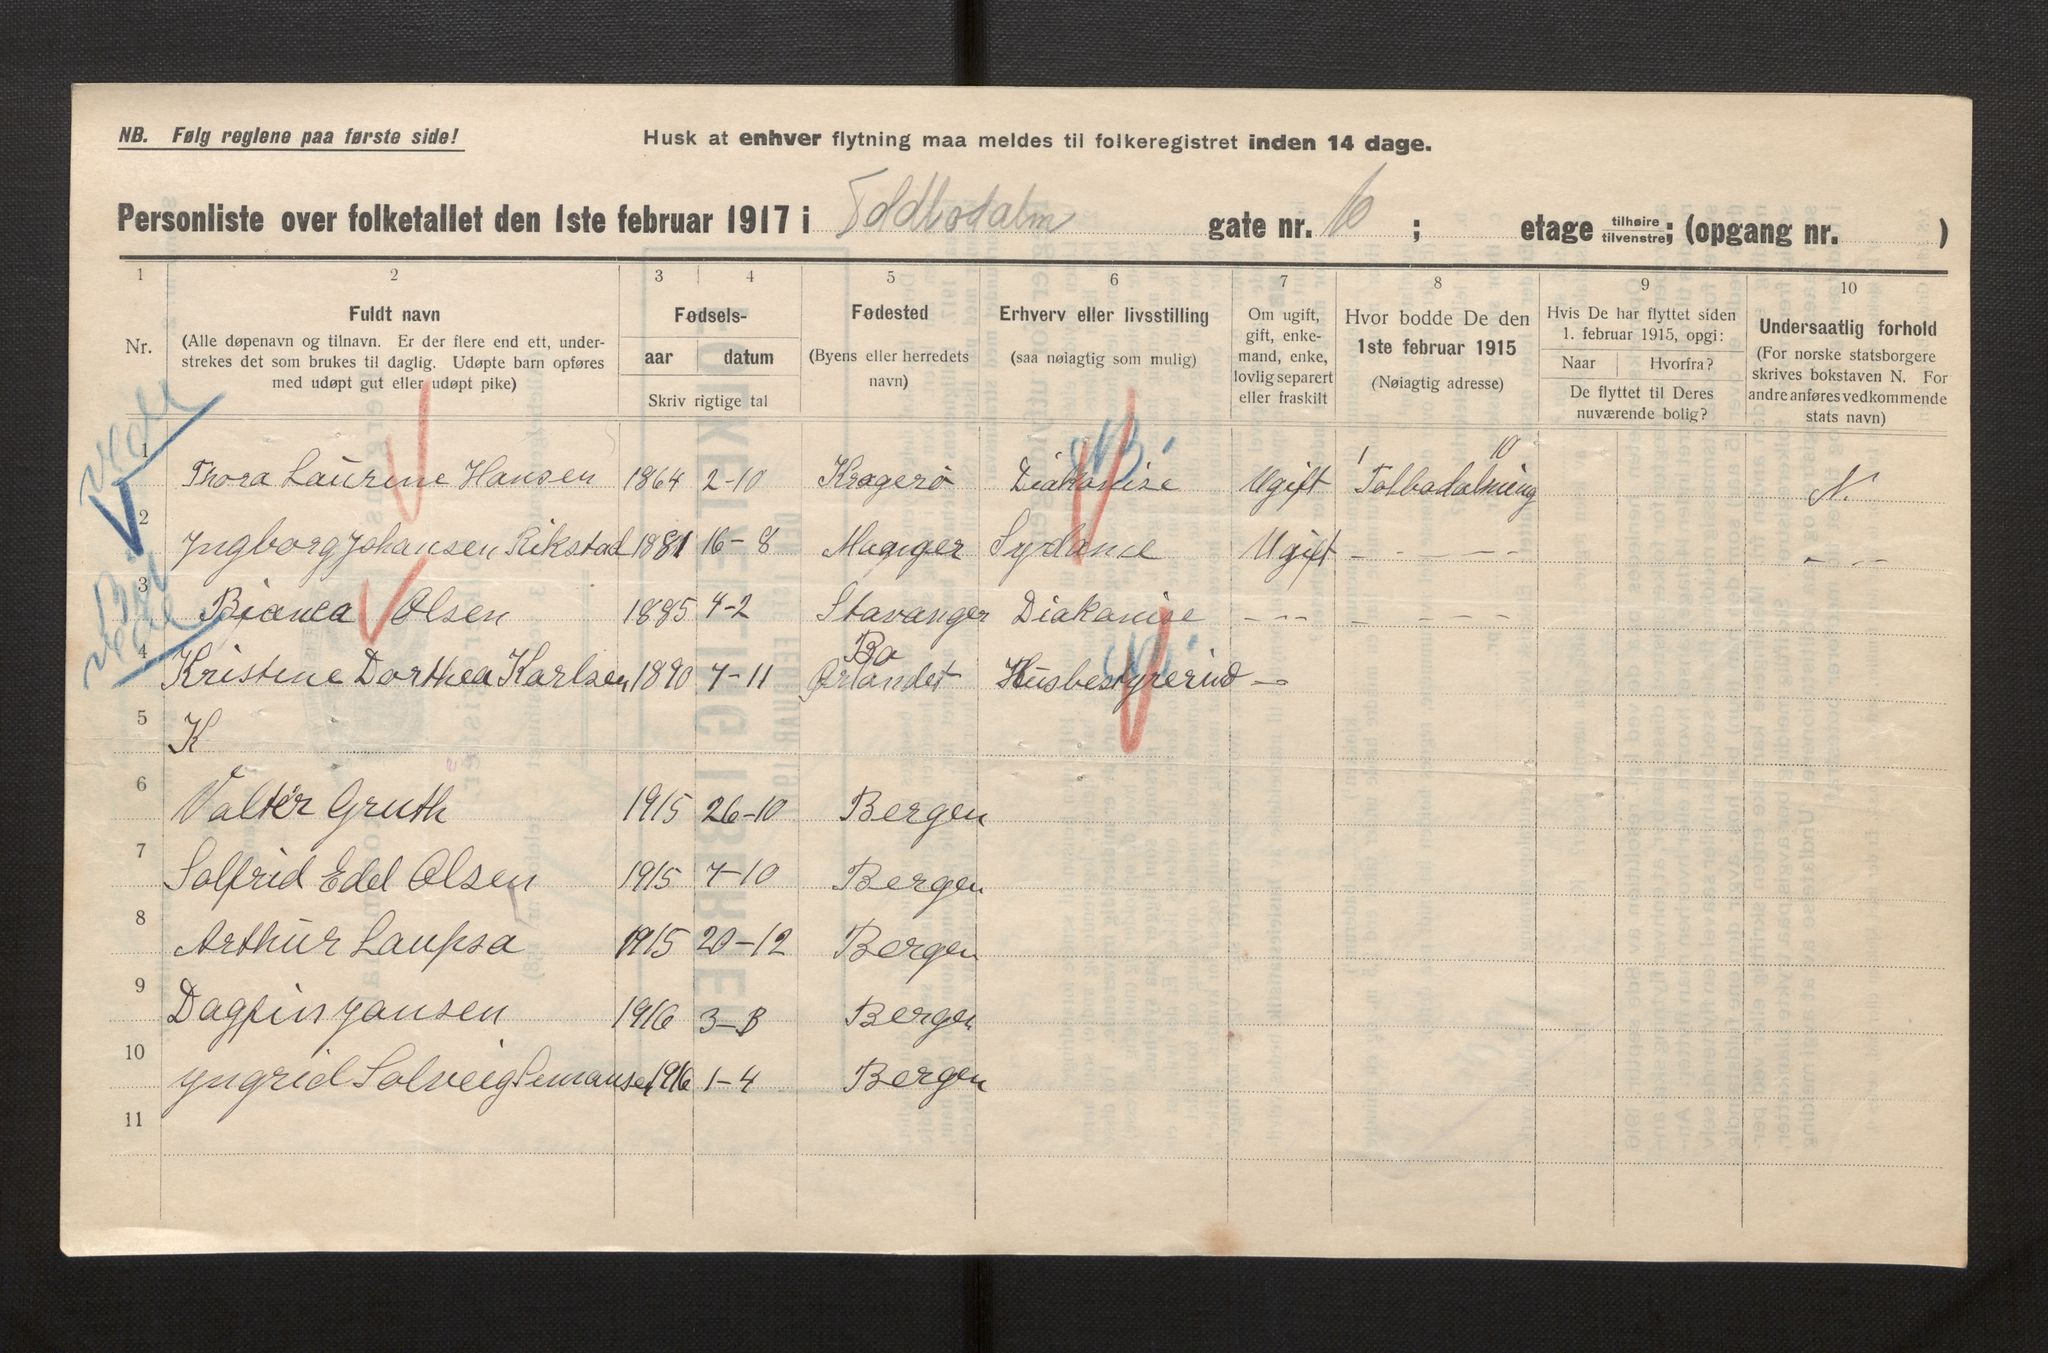 NB. Følg reglene paa første side!
Husk at enhver flytning maa meldes til folkeregistret inden 14 dage.
Personliste over folketallet den 1ste februar 1917 i Toldbodalm gate nr. 10 ; etage tilhøire tilvenstre; (opgang nr. )
1 2 3 4 5 6 7 8 9 10
Nr.
Fuldt navn
(Alle døpenavn og tilnavn. Er der flere end ett, under-
strekes det som brukes til daglig. Udøpte barn opføres
med udøpt gut eller udøpt pike)
Fødsels-
aar datum
Skriv rigtige tal
Fødested
(Byens eller herredets
navn)
Erhverv eller livsstilling
(saa nøiagtig som mulig)
Om ugift,
gift, enke-
mand, enke,
lovlig separert
eller fraskilt
Hvor bodde De den
1ste februar 1915
(Nøiagtig adresse)
Hvis De har flyttet siden
1. februar 1915, opgi:
Naar Hvorfra?
De flyttet til Deres
nuværende bolig?
Undersaatlig forhold
(For norske statsborgere
skrives bokstaven N. For
andre anføres vedkommende
stats navn)
1 Thora Laurine Hansen 1864 2-10 Kragerø Diakonise Ugift Tolbodalming 10 N.
2 Yngborg Johansen Rikstad 1881 16-8 Manger Sydame Ugift - - - - - - - -
3 Bianca Olsen 1885 4-2 Stavanger Diakonise - - - - - - - -
4 Kristine Dorthea Karlsen 1890 7-11 Bo Ørlandet Husbestyrerind -
5 K
6 Valter Gruth 1915 26-10 Bergen
7 Solfrid Edel Olsen 1915 7-10 Bergen
8 Arthur Laupsa 1915 20-12 Bergen
9 Dagfin Jansen 1916 3-8 Bergen
10 Yngrid Solveig 1916 1-4 Bergen
11